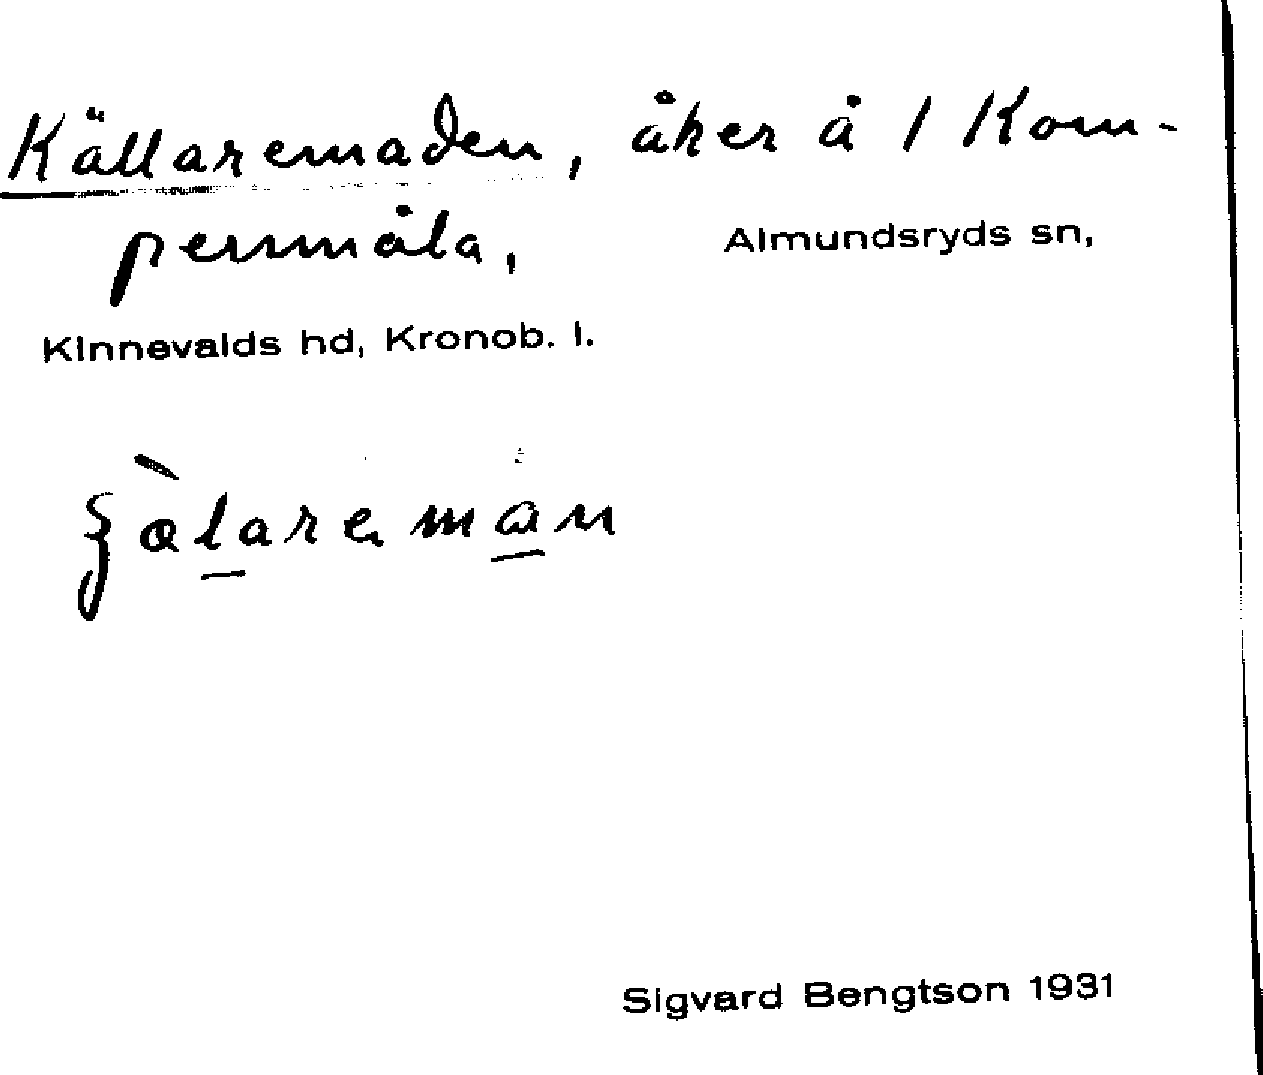 Källaremaden, åker å 1 Kom-
persmåla, Almundsryds sn,
Kinnevalds hd, Kronob. l.
Sigvard Bengtson 1931